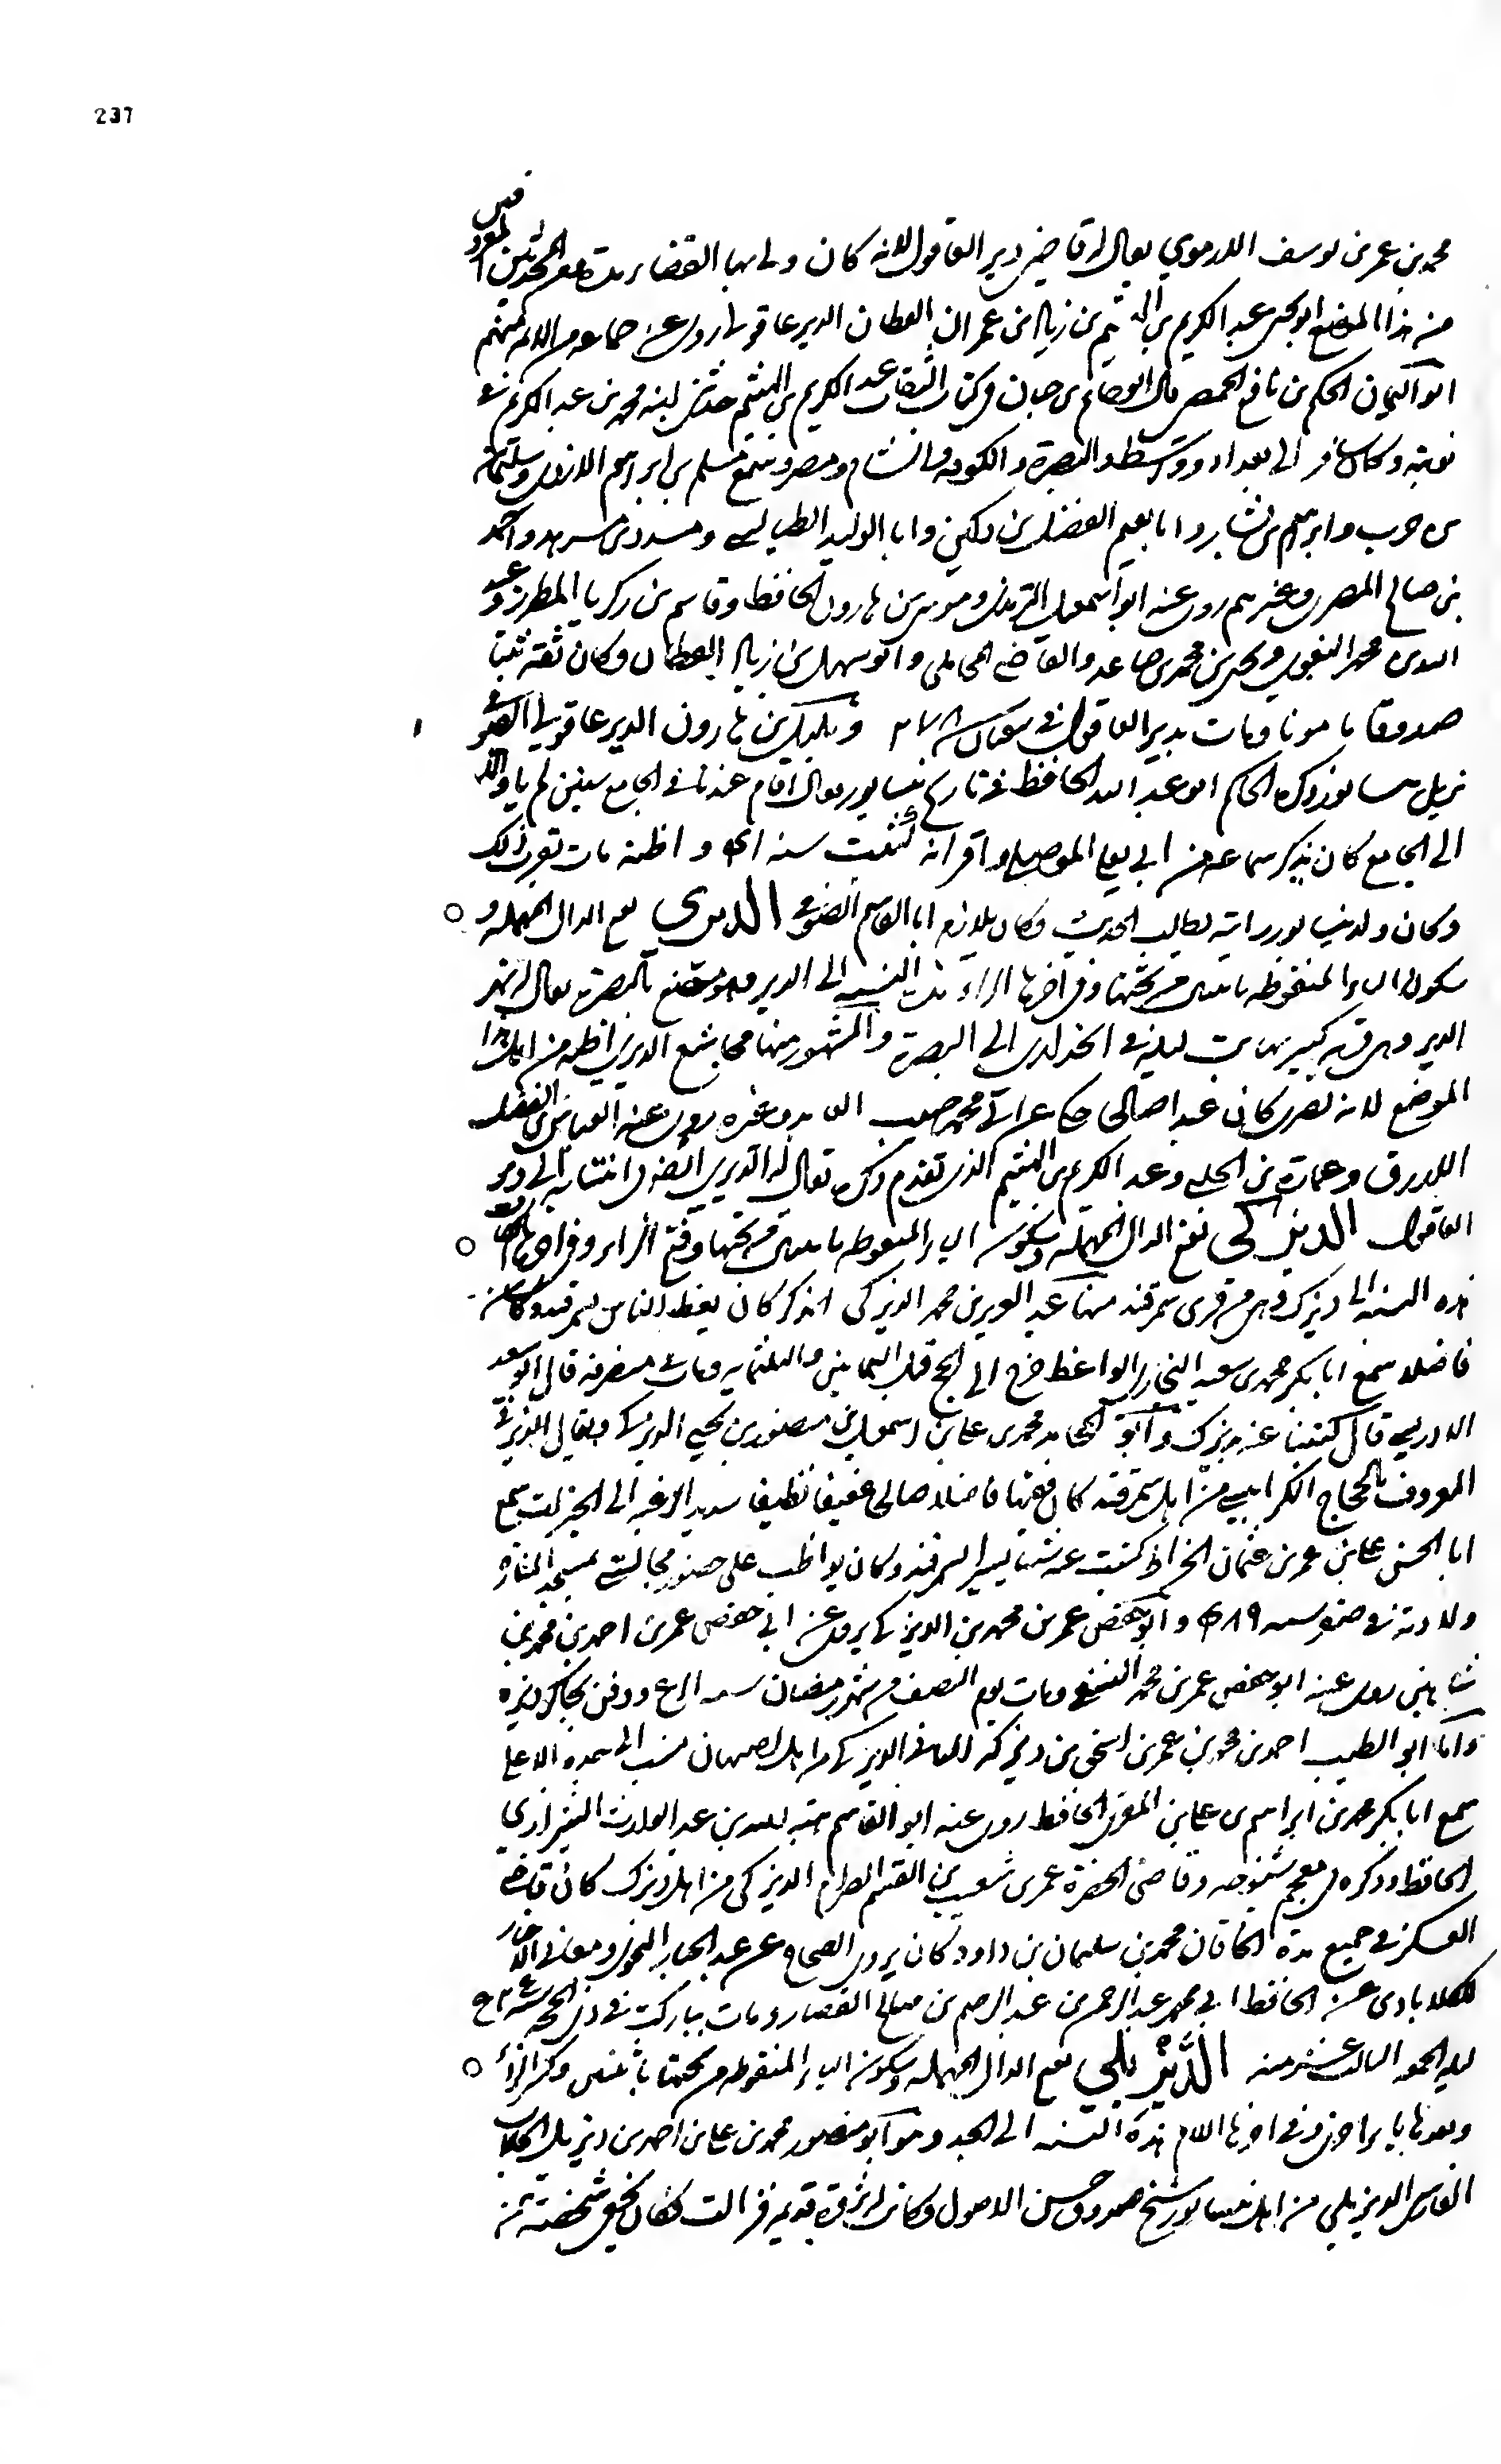 237
محمد بن عمر بن يوسف الارموي يقال له قاضي دير العاقول لانه كان ولي بها القضاء مدة ومن المحدثين المعروفين
من هذا الموضع ابو يحيى عبد الكريم بن الهيثم بن زياد بن عمران القطان الديرعاقولي روى عن جماعة من الائمة منهم
ابو اليمان الحكم بن نافع الحمصي قال ابو حاتم بن حبان في كتاب الثقات عبد الكريم بن الهيثم حدثني ابنه محمد بن عبد الكريم في
وكان سافر الى بغداد وواسط والبصرة والكوفة والشام ومصر وسمع مسلم بن ابراهيم الازدي وسليمان
بن حرب وابراهيم بن بشار وابا نعيم الفضل بن دكين وابا الوليد الطيالسي ومسدد بن مسرهد واحمد
بن صالح المصري وغيرهم روى عنه ابو اسمعيل الترمذي وموسى بن هارون الحافظ وقاسم بن زكريا المطرز وعبد
الله بن محمد البغوي ويحيى بن محمد بن صاعد والقاضي المحاملي وابو سهل بن زياد القطان وكان ثقة ثبتا
صدوقا مامونا ومات بدير العاقول في شعبان سنة ٢٧٨ و بن هارون الديرعاقولي الصوفي
نزيل نيسابور ذكره الحاكم ابو عبد الله الحافظ في تاريخ نيسابور وقال اقام عندنا في الجامع سنين لم ياو الا
الى الجامع كان يذكر سماعه من ابي يعلى الموصلي واقرانه سنة واظنه مات بقرب ذلك
وكان ولد نيسابور رايته يطلب الحديث وكان يلازم ابا القاسم الصوفي الديري بفتح الدال المهملة و
سكون الياء المنقوطة باثنتين من تحتها وفي اخرها الراء هذه النسبة الى الدير وهو موضع بالبصرة يقال له نهر
الدير وهي قرية كبيرة بت ليلة في انحداري الى البصرة والمشهور منها مجاشع الديري اظنه من اهل هذا
الموضع لانه بصري كان عبدا صالحا حكى عن ابي محمد حبيب العابد وغيره روى عنه العباس بن الفضل
الازرق وعمارة بن الحليس وعبد الكريم بن الهيثم الذي تقدم ذكره يقال له الديري ايضا في انتسابه الى دير
العاقول الديزكي بفتح الدال المهملة وسكون الياء المنقوطة باثنتين من تحتها وفتح الزاي وفي اخرها الكاف
هذه النسبة الى ديزك وهي من قرى سمرقند منها عبد العزيز بن محمد الديزكي المذكر كان يعظ الناس بسمرقند وكان
فاضلا سمع ابا بكر محمد بن سعيد البخاري الواعظ خرج الى الحج قبل الثمانين والثلثمائة ومات منصرفه قال ابو سعد
الادريسي قال كتبنا عنه بديزك وابو المحامد محمد بن علي بن اسمعيل بن منصور بن يحيى الديزكي ويقال الديزقي
المعروف بالحجاج الكرابيسي من اهل سمرقند كان فقيها فاضلا صالحا عفيفا نظيفا شديد الرغبة الى الخيرات سمع
ابا الحسن علي بن عمر بن عثمان الخراط كتبت عنه شيئا يسيرا بسمرقند وكان يواظب على حضور مجالستي بمسجد المنارة
ولادته في صفر سنة وابو حفص عمر بن محمد بن الديزكي يروي عن ابي حفص عمر بن احمد بن محمد بن
شاهين روى عنه ابو حفص عمر بن محمد النسفي ومات يوم النصف من شهر رمضان سنة ودفن
واما ابو الطيب احمد بن محمد بن عمر بن اسحق بن ديزكة الديزكي من اهل اصبهان نسب الى جده الاعلى
سمع ابا بكر محمد بن ابراهيم بن علي بن المقري الحافظ روى عنه ابو القاسم هبة الله بن عبد الوارث الشيرازي
الحافظ وذكره في معجم شيوخه وقاضي الحضرة عمر بن شعيب بن القسم الديزكي من اهل ديزك كان قاضي
العسكر في جميع مدة الخاقان محمد بن سليمان بن داود كان يروي عن عبد الجبار النحوي ومعاني الاخبار
للكلاباذي عن الحافظ ابي محمد عبد الرحمن بن عبد الرحيم بن صالح القصار ومات بباركث في ذي الحجة
ليلة الجمعة الثالث عشر منه الديزيلي بفتح الدال المهملة وسكون الياء المنقوطة من تحتها باثنتين وكسر الزاء
وبعدها ياء اخرى وفي اخرها اللام هذه النسبة الى الجد وهو ابو منصور محمد بن علي بن احمد بن ديزيل الجلاب
الفارسي الديزيلي من اهل نيسابور شيخ صدوق حسن الاصول وكان له ثروة قديمة فزالت فكان